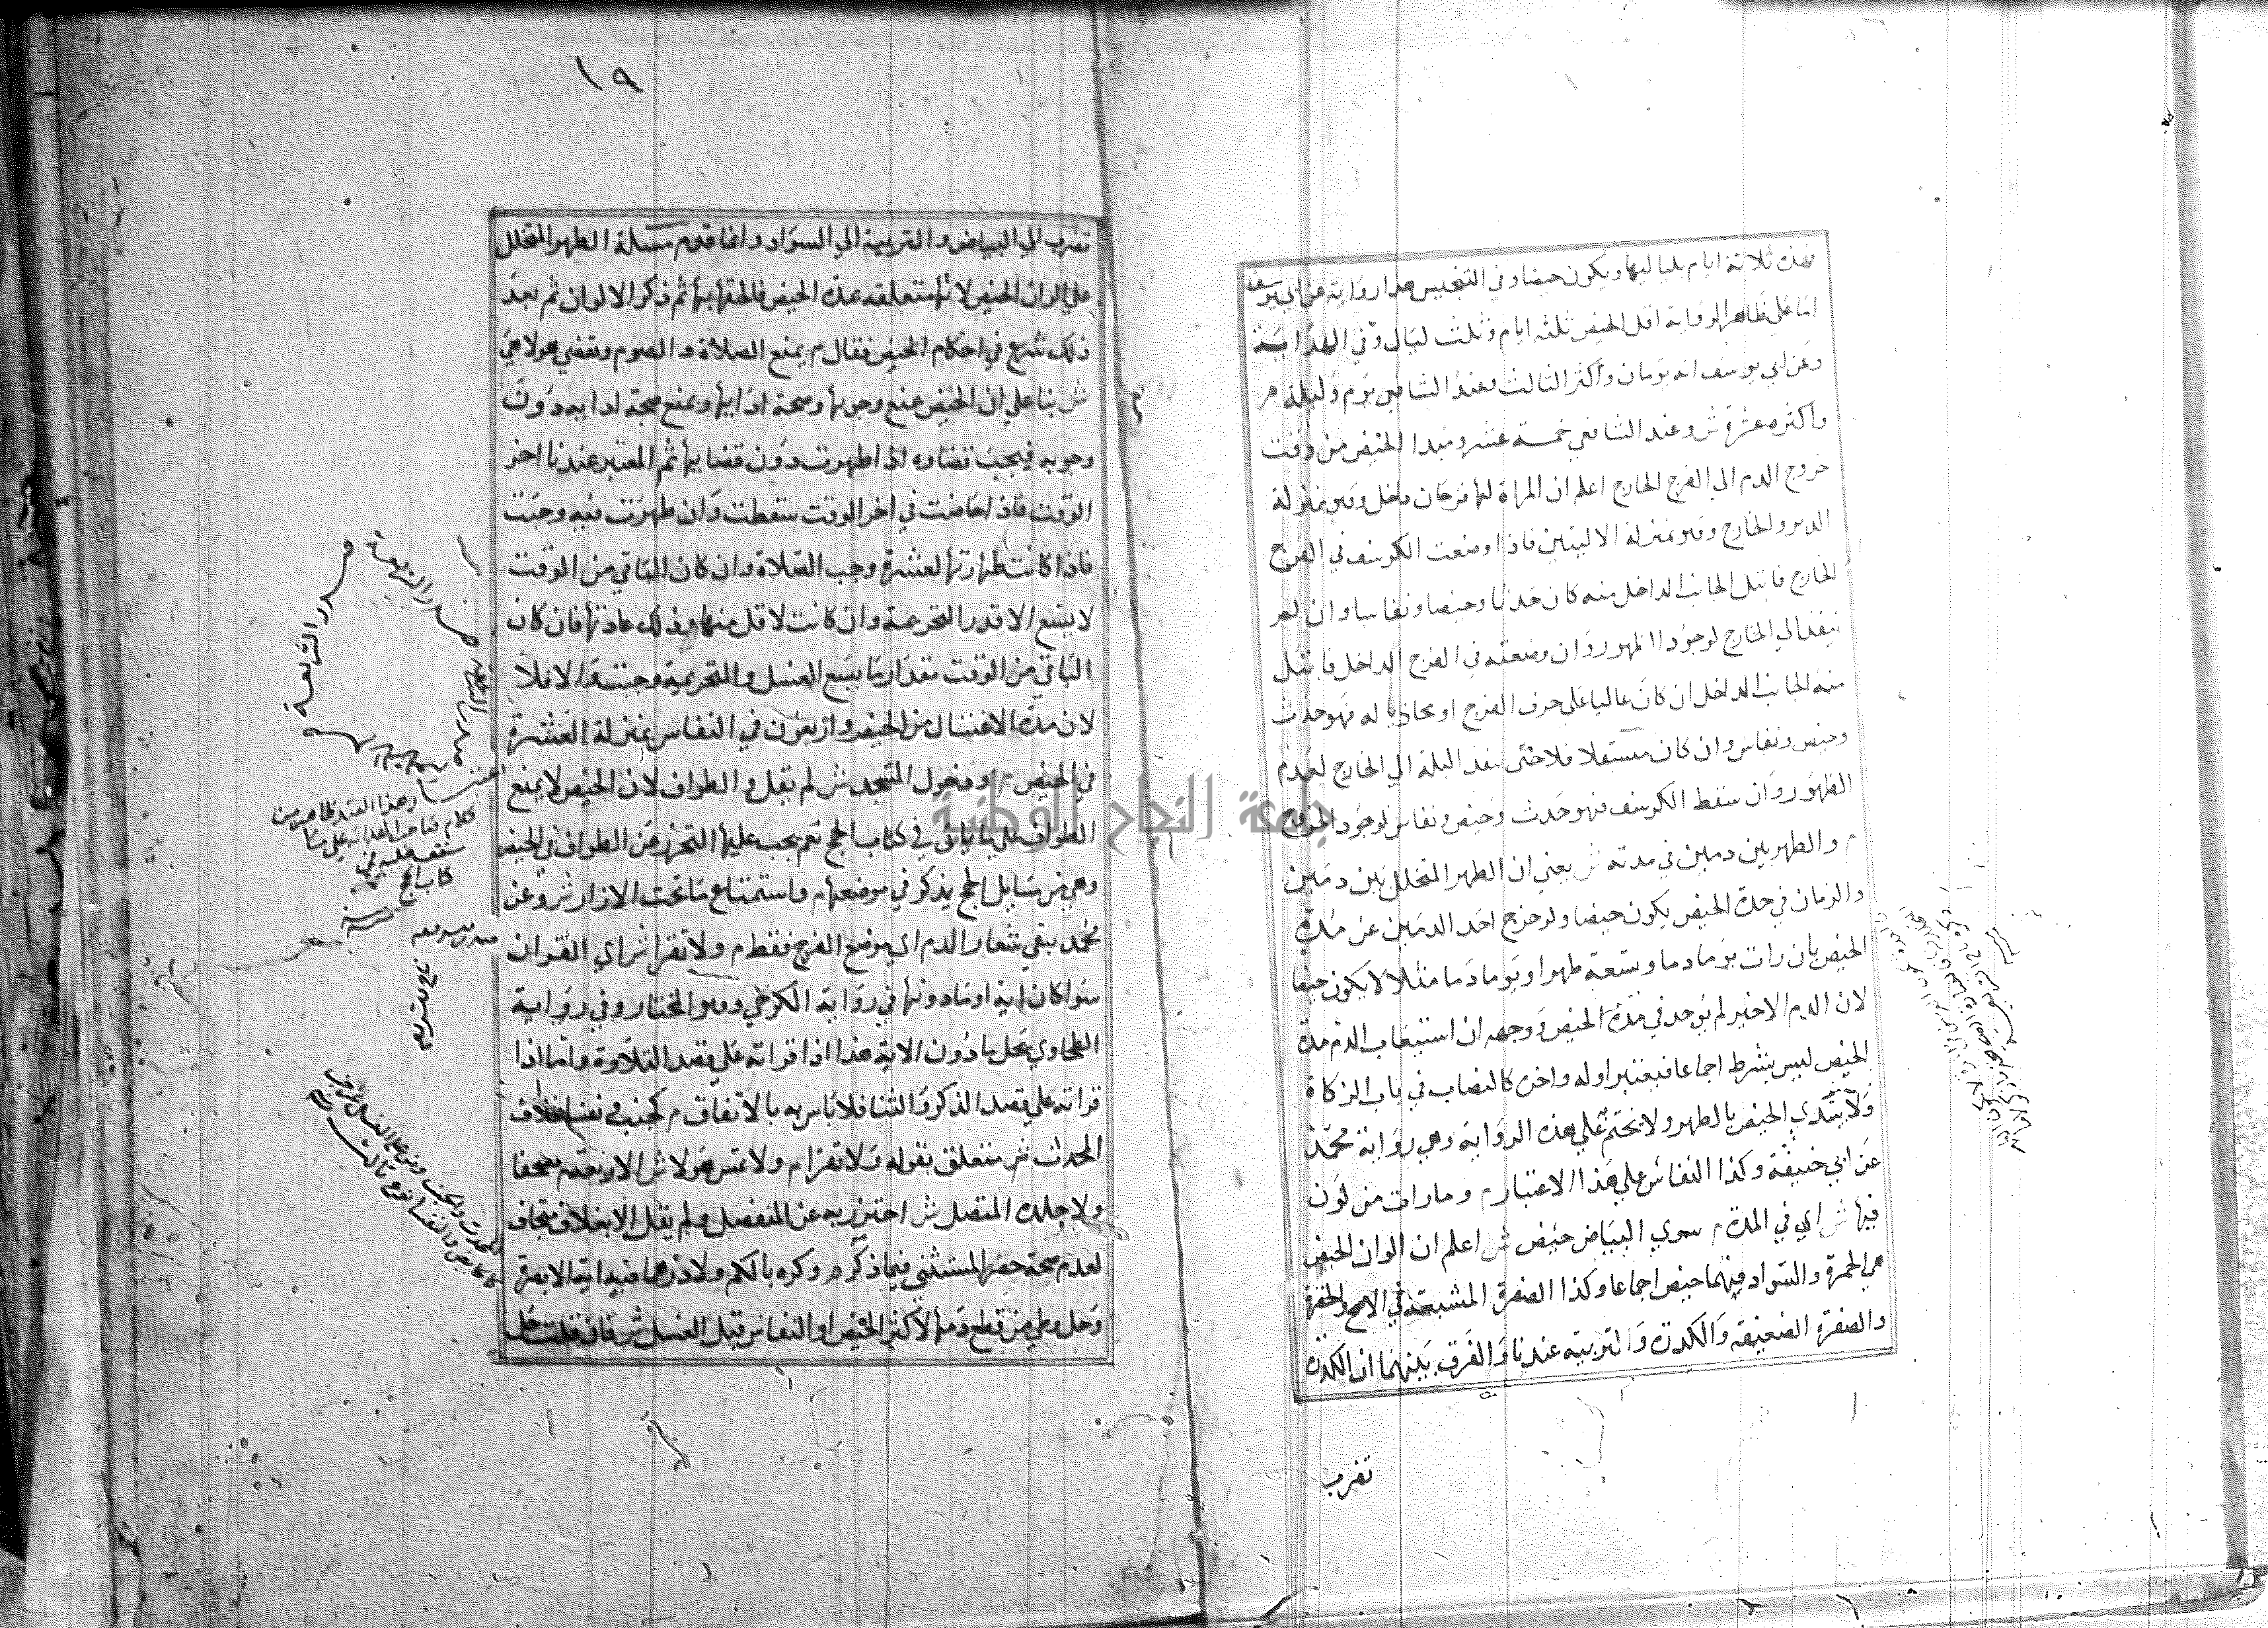 فهذه ثلاثة ايام بلياليها ويكون حيضا وفي التجنيس هذا رواية عن ابي يوسف
اما على ظاهر الرواية اقل الحيض ثلثه ايام وثلث ليال وفي الهداية
وعن ابي يوسف انه يومان واكثر الثالث وعند الشافعي يوم وليلة م
واكثره عشرة ش وعند الشافعي خمسة عشر ومبدا الحيض من وقت
خروج الدم الي الفرج الخارج اعلم ان المراة لها فرجان داخل وهو بمنزلة
الدبر والخارج وهو بمنزلة الاليتين فاذا وضعت الكرسف في الفرج
الخارج فابتل الجانب الداخل منه كان حدثا وحيضا ونفاسا وان لم
ينفذ الي الخارج لوجود الظهور وان وضعته في الفرج الداخل فابتل
منه الجانب الداخل ان كان عاليا على حرف الفرج او محاذيا له فهو حدث
وحيض ونفاس وان كان مستفلا فلا حتى تنفذ البلة الي الخارج لعدم
الظهور وان سقط الكرسف فهو حدث وحيض ونفاس لوجود الخروج
م والطهر بين دمين في مدته ش يعني ان الطهر المتخلل بين دمين
والدمان في مدة الحيض يكون حيضا ولو خرج احد الدمين عن مدة
الحيض بان رات يوما دما وتسعة طهرا ويوما دما مثلا لا يكون حيضا
لان الدم الاخير لم يوجد في مدة الحيض ووجهه ان استيعاب الدم مدة
الحيض ليس بشرط اجماعا فيعتبر اوله واخره كالنصاب في باب الزكاة
ولا يبتدي الحيض بالطهر ولا يختم على هذه الرواية وهي رواية محمد
عن ابي حنيفة وكذا النفاس على هذا الاعتبار م وما رات من لون
فيها ش اي في المدة م سوي البياض حيض ش اعلم ان الوان الحيض
هي الحمرة والسواد فهما حيض اجماعا وكذا الصفرة المشبعة في الاصح والخضرة
والصفرة الضعيفة والكدرة والتربية عندنا والفرق بينهما ان الكدرة
تضرب
١٩
تضرب الي البياض والتربية الي السواد وانما قدم مسئلة الطهر المتخلل
علي الوان الحيض لانها متعلقه بمدة الحيض فالحقها بها ثم ذكر الالوان ثم بعد
ذلك شرع في احكام الحيض فقال م يمنع الصلاة والصوم وتقضي هو لا هي
ش بنا علي ان الحيض يمنع وجوبها وصحة ادايها ويمنع صحة ادايه دون
وجوبه فيجب قضاوه اذا طهرت دون قضايها ثم المعتبر عندنا اخر
الوقت فاذا حاضت في اخر الوقت سقطت وان طهرت فيه وجبت
فاذا كانت طهارتها لعشرة وجب الصلاة وان كان الباقي من الوقت
لا يسع الا قدر التحريمة وان كانت لاقل منها وذلك عادتها فان كان
الباقي من الوقت مقدار ما يسع الغسل والتحريمة وجبت والا فلا
لان مدة الاغتسال من الحيض واربعون في النفاس بمنزلة العشرة
في الحيض م ودخول المسجد ش لم تقل والطواف لان الحيض لا يمنع
الطواف علي ما ياتي في كتاب الحج نعم يجب عليها التحرز عن الطواف في الحيض
وهي من مسايل الحج يذكر في موضعها م واستمتاع ما تحت الازار ش وعن
محمد يتقي شعار الدم اي موضع الفرج فقط م ولا تقرا ش اي القران
سوا كان اية او ما دونها في رواية الكرخي وهو المختار وفي رواية
الطحاوي يحل ما دون الاية هذا اذا قراته علي قصد التلاوة واما اذا
قراته علي قصد الذكر والثنا فلا باس به بالاتفاق م كجنب ونفسا بخلاف
المحدث ش متعلق بقوله ولا تقرا م ولا تمس هولا ش الاربعة م مصحفا
ولا جلده المتصل ش احترز به عن المنفصل ولم يقل الا بغلاف متجاف
لعدم صحة حصر المستثني فيما ذكر م وكره بالكم ولا درهما فيه اية الا بصرة
وحل وطي من قطع دمها لاكثر الحيض او النفاس قبل الغسل ش فان قلت حل
صدر الشريعة
وهذا القيد ظاهر من
كتاب الحج